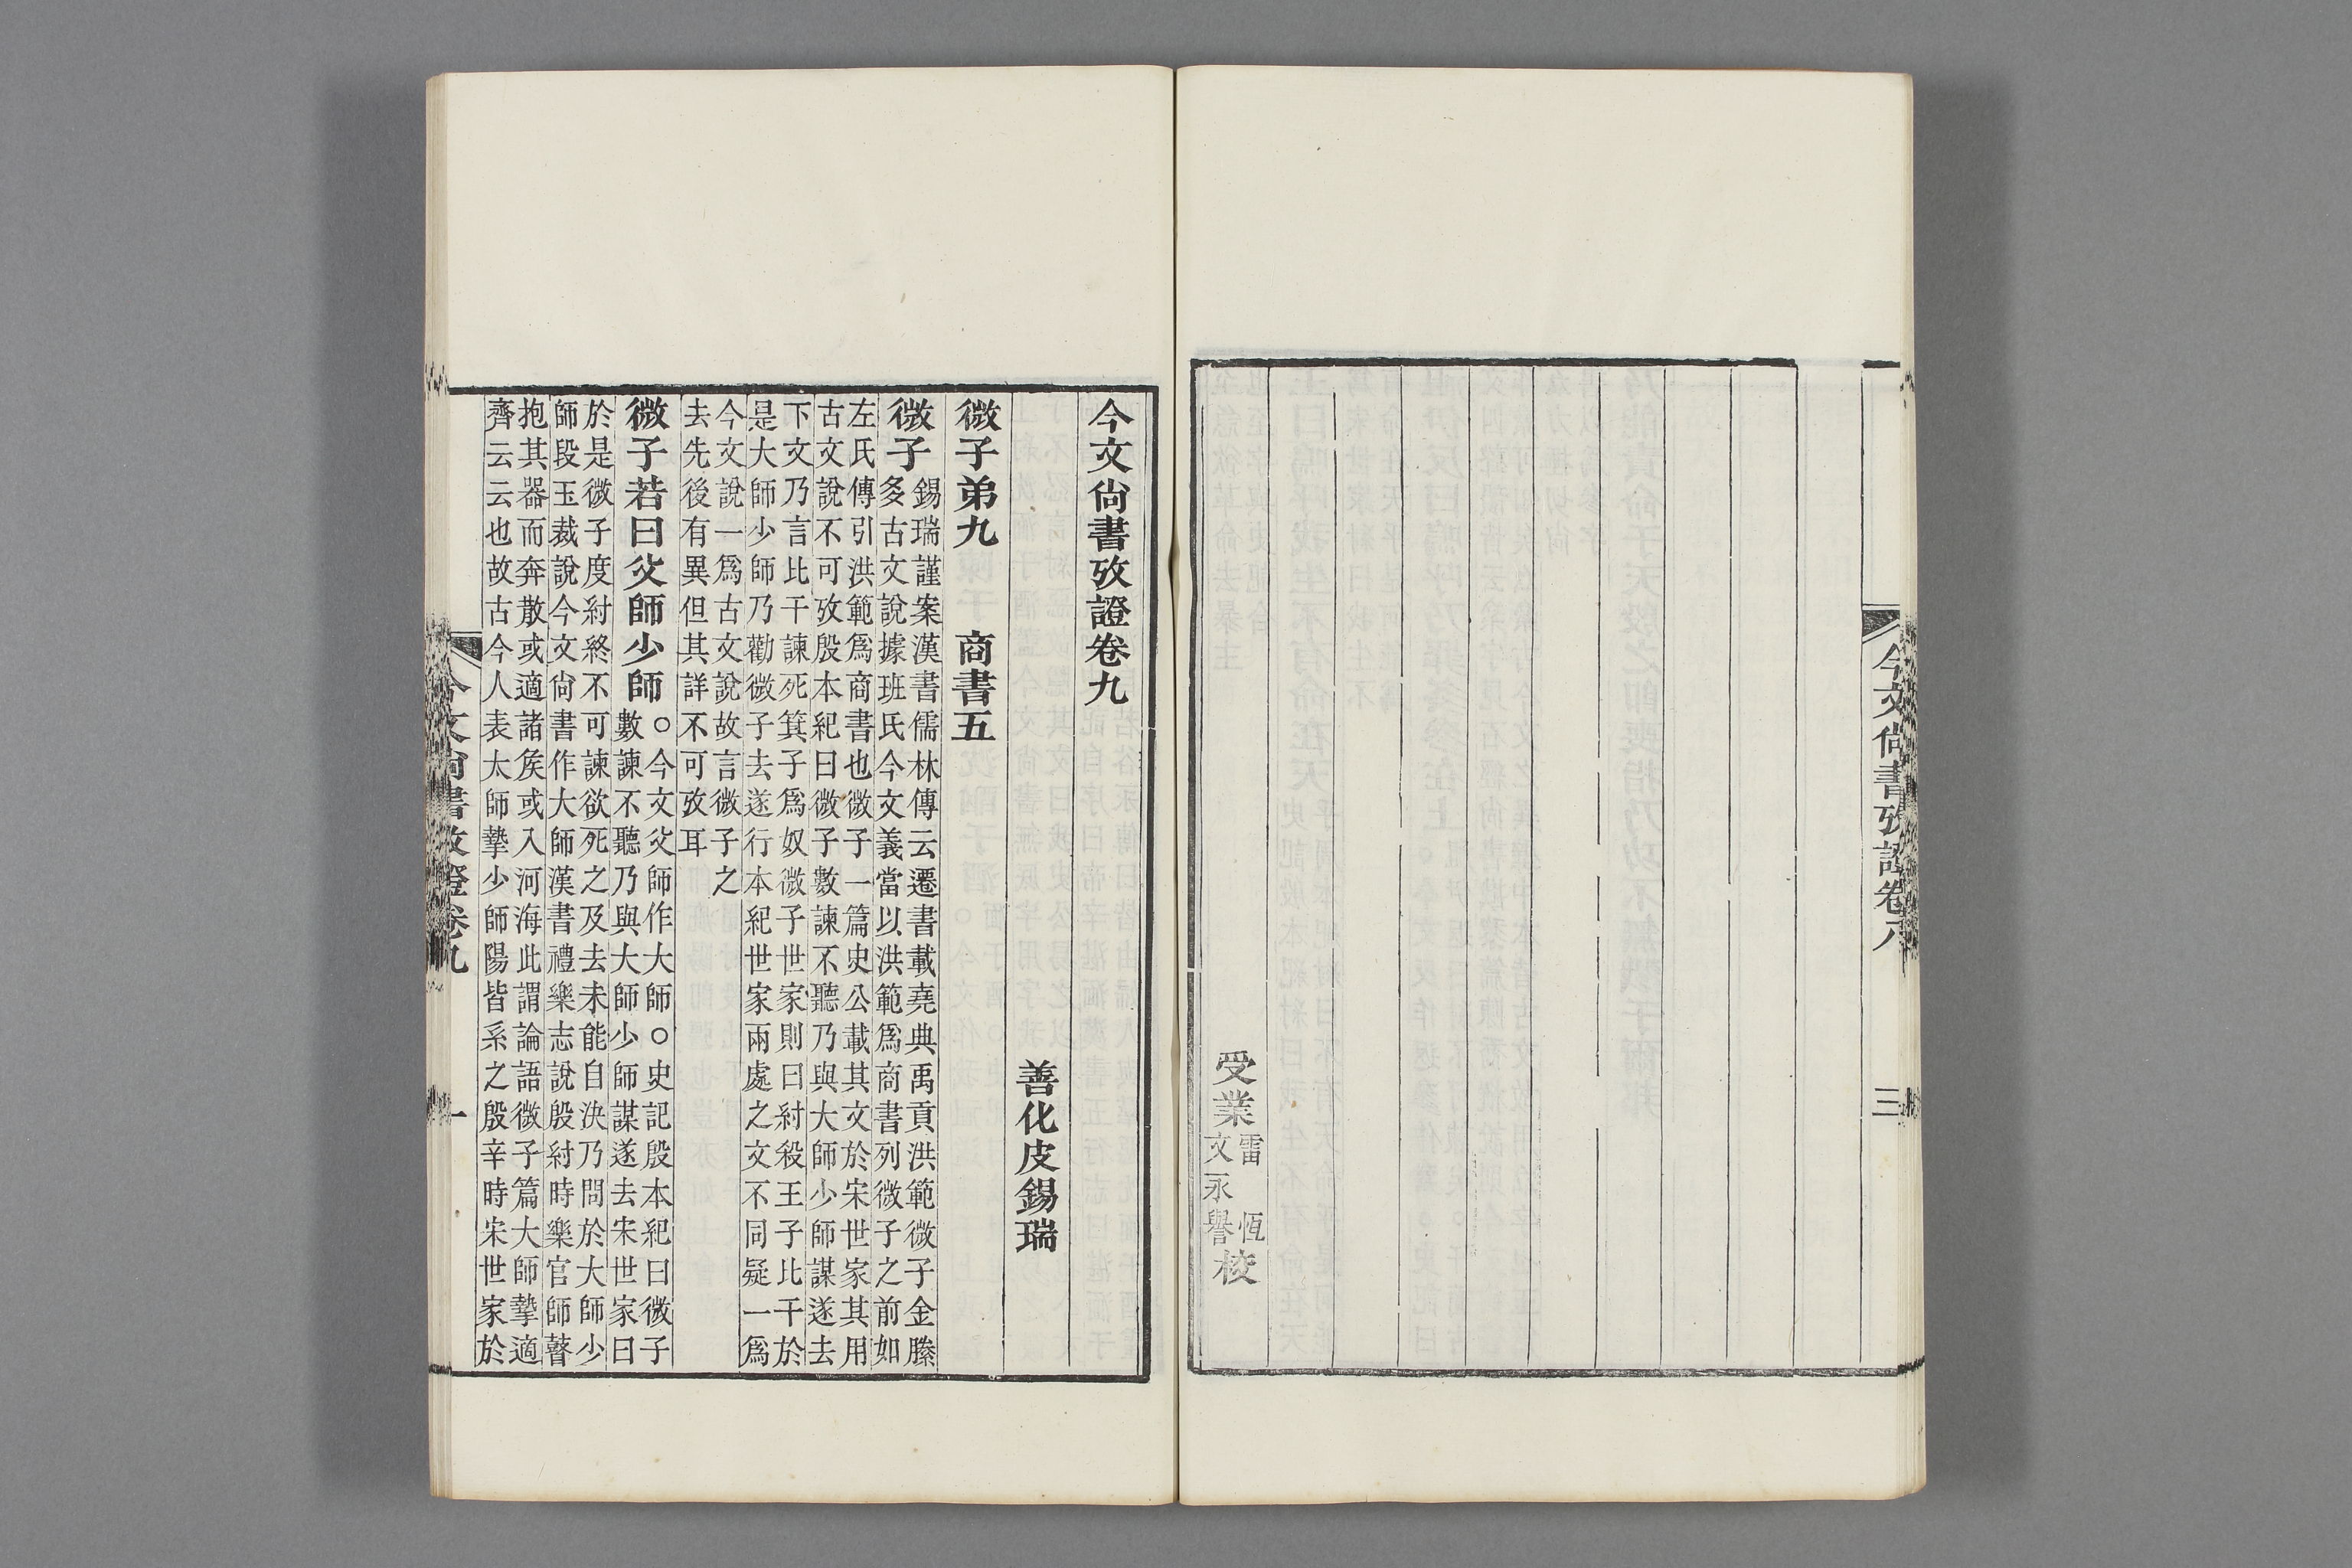 今文尚書攷證卷八
三
受業雷恆文永譽校
今文尚書攷證卷九
善化皮錫瑞
微子弟九　商書五
微子錫瑞謹案漢書儒林傳云遷書載堯典禹貢洪範微子金縢
多古文說據班氏今文義當以洪範爲商書列微子之前如
左氏傳引洪範爲商書也微子一篇史公載其文於宋世家其用
古文說不可攷殷本紀曰微子數諫不聽乃與大師少師謀遂去
下文乃言比干諫死箕子爲奴微子世家則曰紂殺王子比干於
是大師少師乃勸微子去遂行本紀世家兩處之文不同疑一爲
今文說一爲古文說故言微子之
去先後有異但其詳不可攷耳
微子若曰父師少師○今文父師作大師○史記殷本紀曰微子
數諫不聽乃與大師少師謀遂去宋世家曰
於是微子度紂終不可諫欲死之及去未能自決乃問於大師少
師段玉裁說今文尚書作大師漢書禮樂志說殷紂時樂官師瞽
抱其器而奔散或適諸矦或入河海此謂論語微子篇大師摯適
齊云云也故古今人表太師摯少師陽皆系之殷辛時宋世家於
今文尚書攷證卷九
一